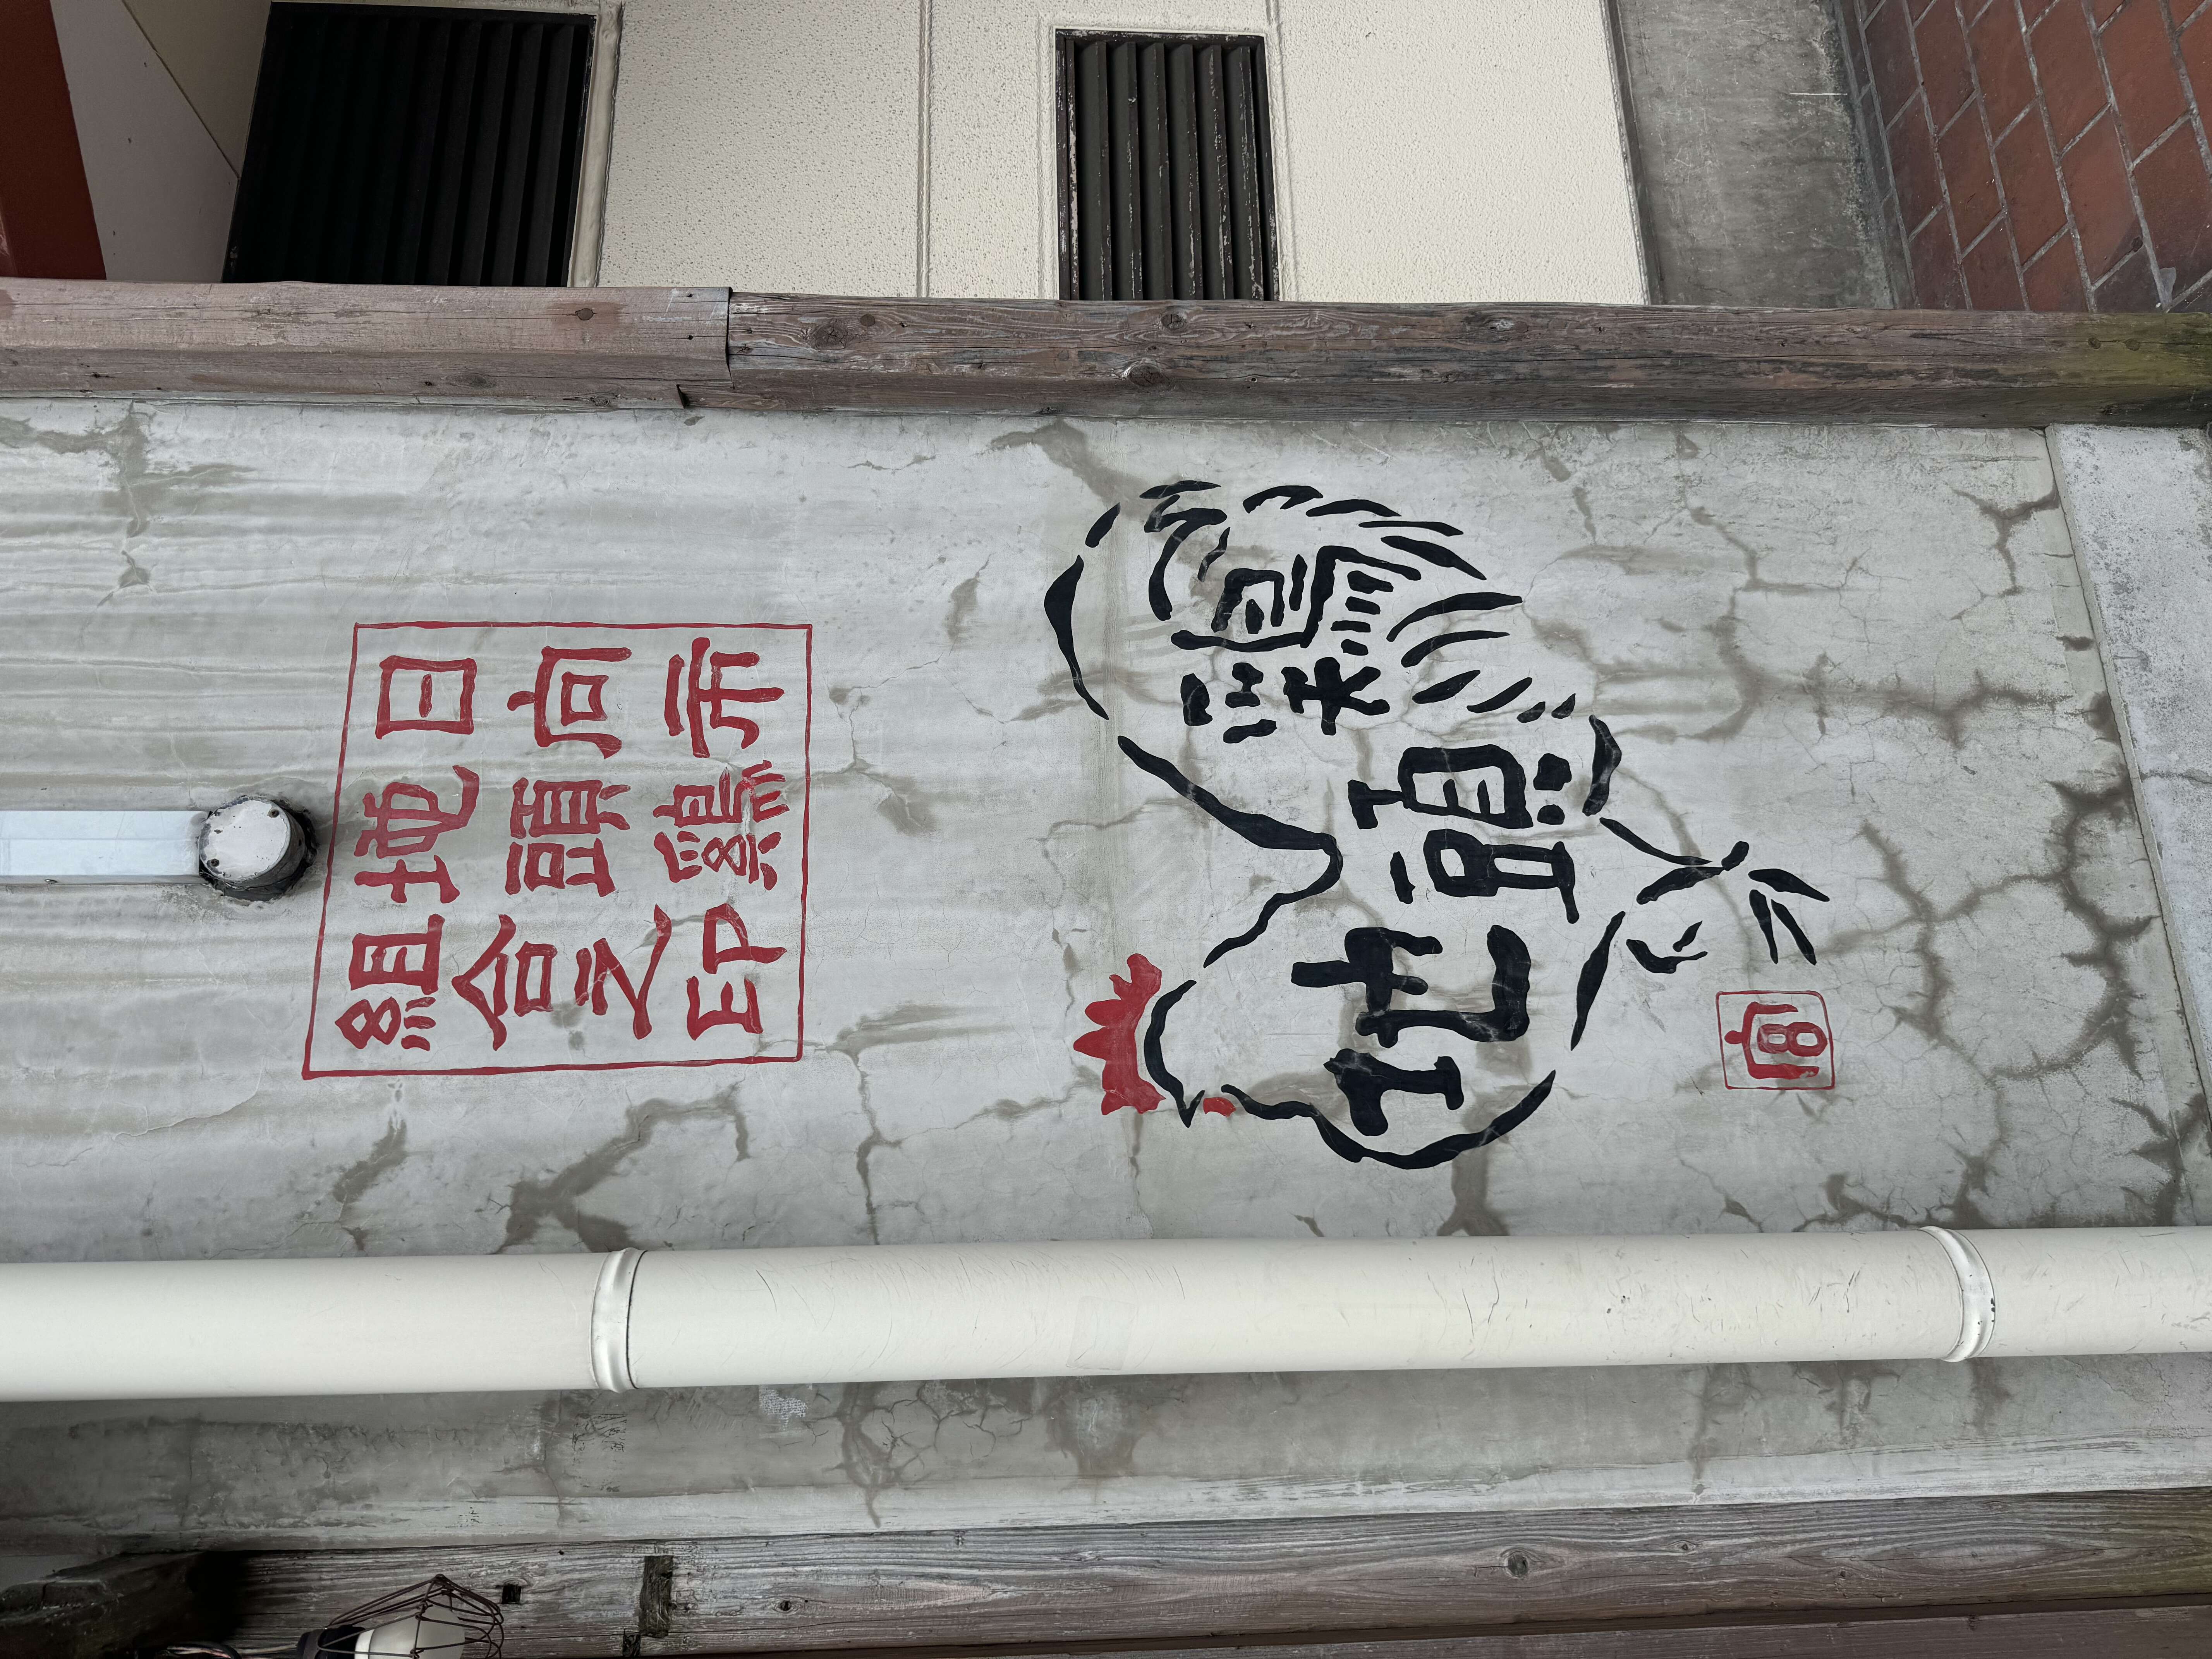 日向市
地頭鷄
組合之印
地頭鶏
宮